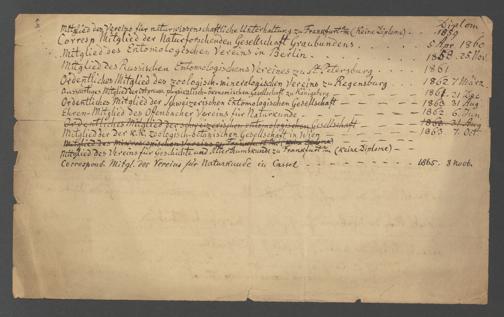 Diplom
Mitglied des Vereins für naturwissenschaftliche Unterhaltung zu Frankfurt a/m (Keine Diplome) - 1859
Corresp Mitglied der Naturforschenden Gesellschaft Graubündens 5 Nov 1860
Mitglied des Entomologischen Vereins in Berlin 1858. 25 Nov.
Mitglied des Russischen Entomologischen Vereines zu St. Petersburg 1861
Ordentliches Mitglied des zoologisch-mineralogischen Vereins zu Regensburg 1862 7 März
Auswärtiges Mitglied der physikalisch-oeconomischen Gesellschaft zu Königsberg
Ordentliches Mitglied der Schweizerischen Entomologischen Gesellschaft 1863 31 Aug
Ehren-Mitglied des Offenbacher Vereins für Naturkunde 1862 6 Jun
Ordentliches Mitglied der schweizerischen entomologischen Gesellschaft 31 Aug
Mitglied der K.K. Zoologisch-botanischen Gesellschaft in Wien 1863 7. Oct.
Mitglied des Mikroscopischen Vereins zu Frankfurt a/m (Keine Diplome)
Mitglied des Vereins für Geschichte und Alterthumskunde zu Frankfurt a/m (Keine Diplome)
Correspond. Mitgl. des Vereins für Naturkunde in Cassel 1865. 8 Novb.